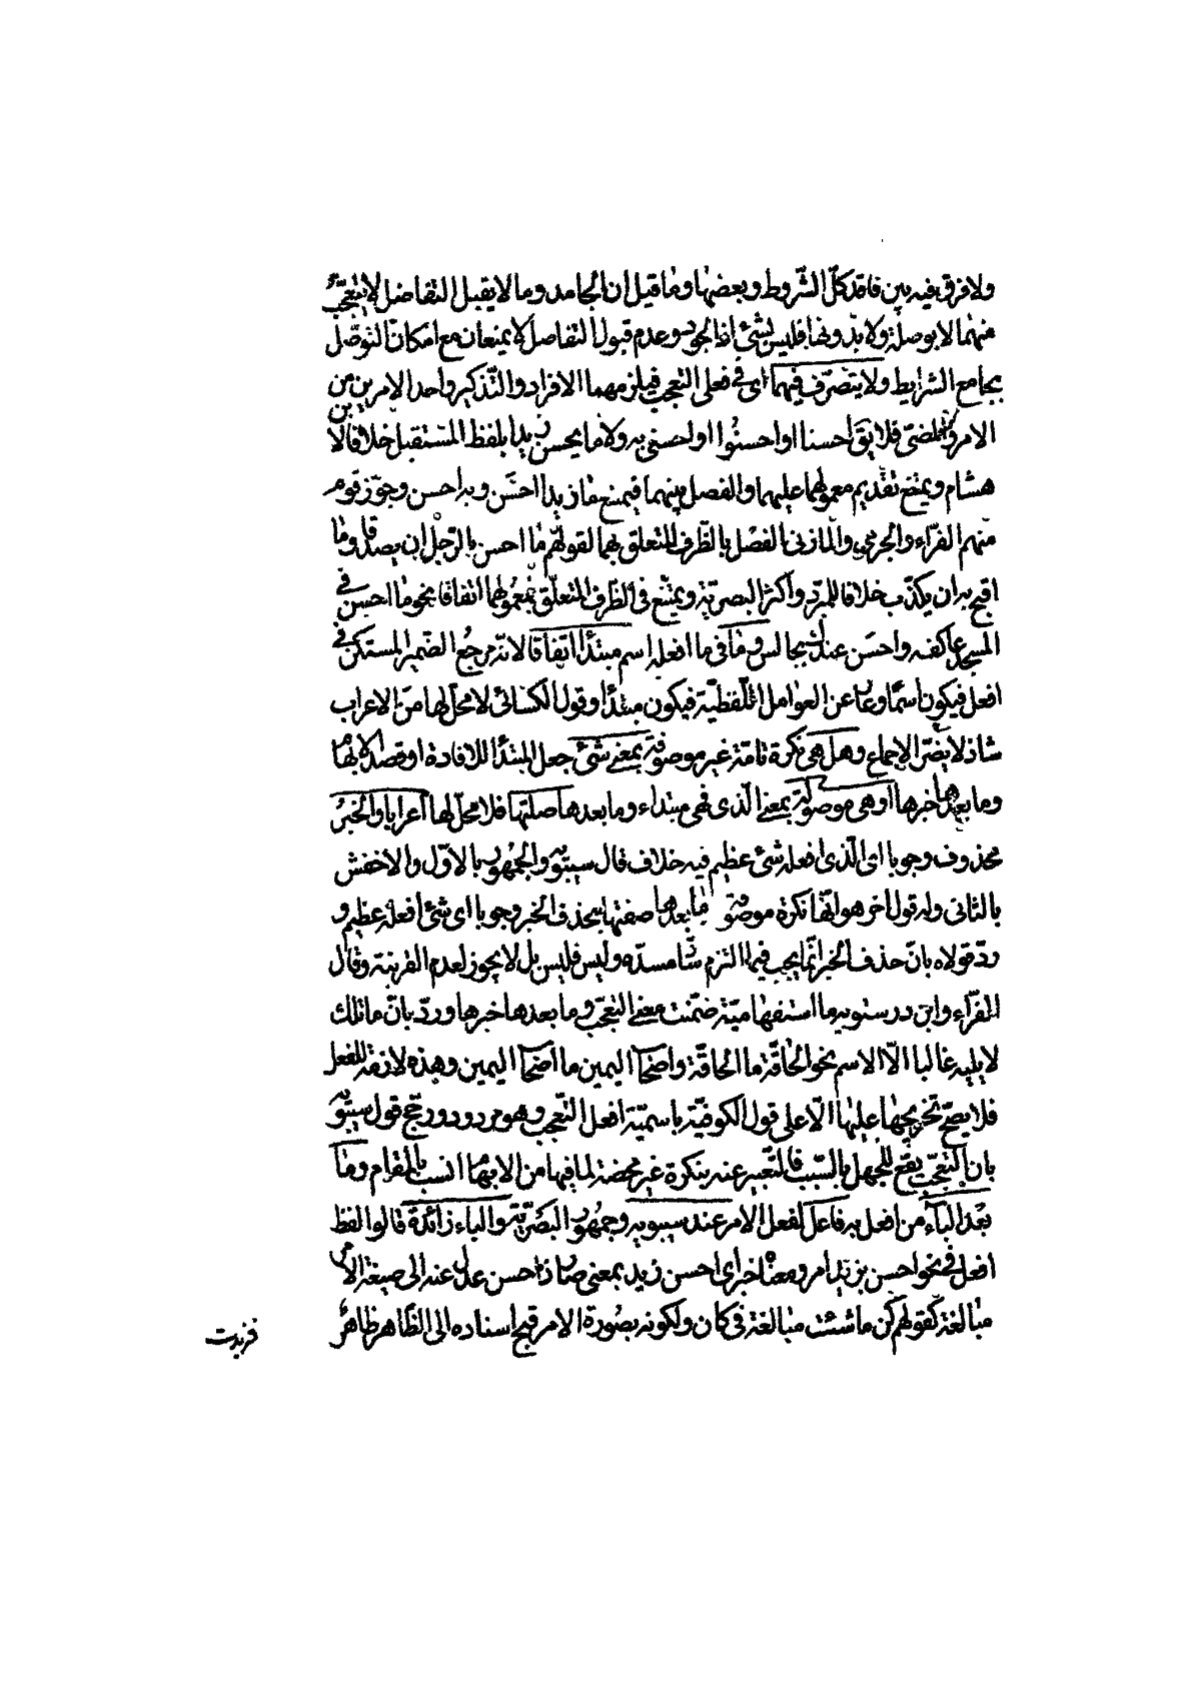 ولا فرق فيه بين فاقد كلّ الشّروط وبعضها وما قيل ان الجامد وما لا يقبل التفاضل لا يتعجّب
منهما لا بوصلة ولا بدونها فليس بشئ اذ الجمود وعدم قبول التفاضل لا يمنعان مع امكان التوصّل
بجامع الشرايط ولا يتصرّف فيهما اى فى فعلى التعجب فيلزمهما الافراد والتّذكير واحد الامرين من
الامر والمضىّ فلا يق احسنا او احسنوا او احسنى به ولا ما يحسن زيدا بلفظ المستقبل خلافا لابن
هشام ويمتنع تقديم معمولهما عليهما والفصل بينهما فيمتنع ما زيدا احسن وبه احسن وجوّز قوم
منهم الفرّاء والجرمى والمازنى الفصل بالظّرف المتعلق بهما لقولهم ما احسن بالرّجل ان يصدق وما
اقبح به ان يكذب خلافا للمبرّد واكثر البصريّة ويمتنع فى الظّرف المتعلّق بمعمولهما اتفاقا نحو ما احسن فى
المسجد عاكفه واحسن عندك بجالس وما فى ما افعله اسم مبتدأ اتفاقا لانه مرجع الضمير المستكن فى
افعل فيكون اسمًا وعار عن العوامل اللّفظيّة فيكون مبتدأ وقول الكسائى لا محلّ لها من الاعراب
شاذ لا يضرّ الاجماع وهل هى نكرة تامّة غير موصوفة بمعنى شئ جعل المبتدأ للافادة او قصد الابهام
وما بعدها خبرها او هى موصولة بمعنى الّذى فهى مبتداء وما بعدها صلتها فلا محلّ لها اعرابا والخبر
محذوف وجوبا اى الّذى افعله شئ عظيم فيه خلاف قال سيبويه والجمهور بالاوّل والاخفش
بالثانى وله قول اخر هو انّها نكرة موصوفة ما بعدها صفتها بحذف الخبر وجوبا اى شئ افعله عظيم و
ردّ قولاه بانّ حذف الخبر انّما يجب فيما التزم شئ مسدّه وليس فليس بل لا يجوز لعدم القرينة وقال
الفرّاء وابن درستويه ما استفهاميّة ضمّنت معنى التعجّب وما بعدها خبرها وردّ بانّ ما تلك
لا يليه غالبا الّا الاسم نحو الحاقّة ما الحاقّة واصحاب اليمين ما اصحاب اليمين وهذه لازمة للفعل
فلا يصحّ تخريجها عليها الّا على قول الكوفيّة باسميّة افعل التّعجب وهو مردود ورجّح قول سيبويه
بان التعجّب يقع للجهل بالسّبب فالتّعبير عنه بنكرة غير محضة لما فيها من الابهام انسب بالمقام وما
بعد الباء من افعل به فاعل لفعل الامر عند سيبويه وجمهور البصريّة والباء زائدة قالوا لفظ
افعل فى نحو احسن بزيد امر ومعناه اخبار اى احسن زيد بمعنى صار ذا حسن عدل عنه الى صيغة الامر
مبالغة كقولهم كن ما شئت مبالغة فى كان ولكونه بصورة الامر قبح اسناده الى الظّاهر ظاهر
فزيدت